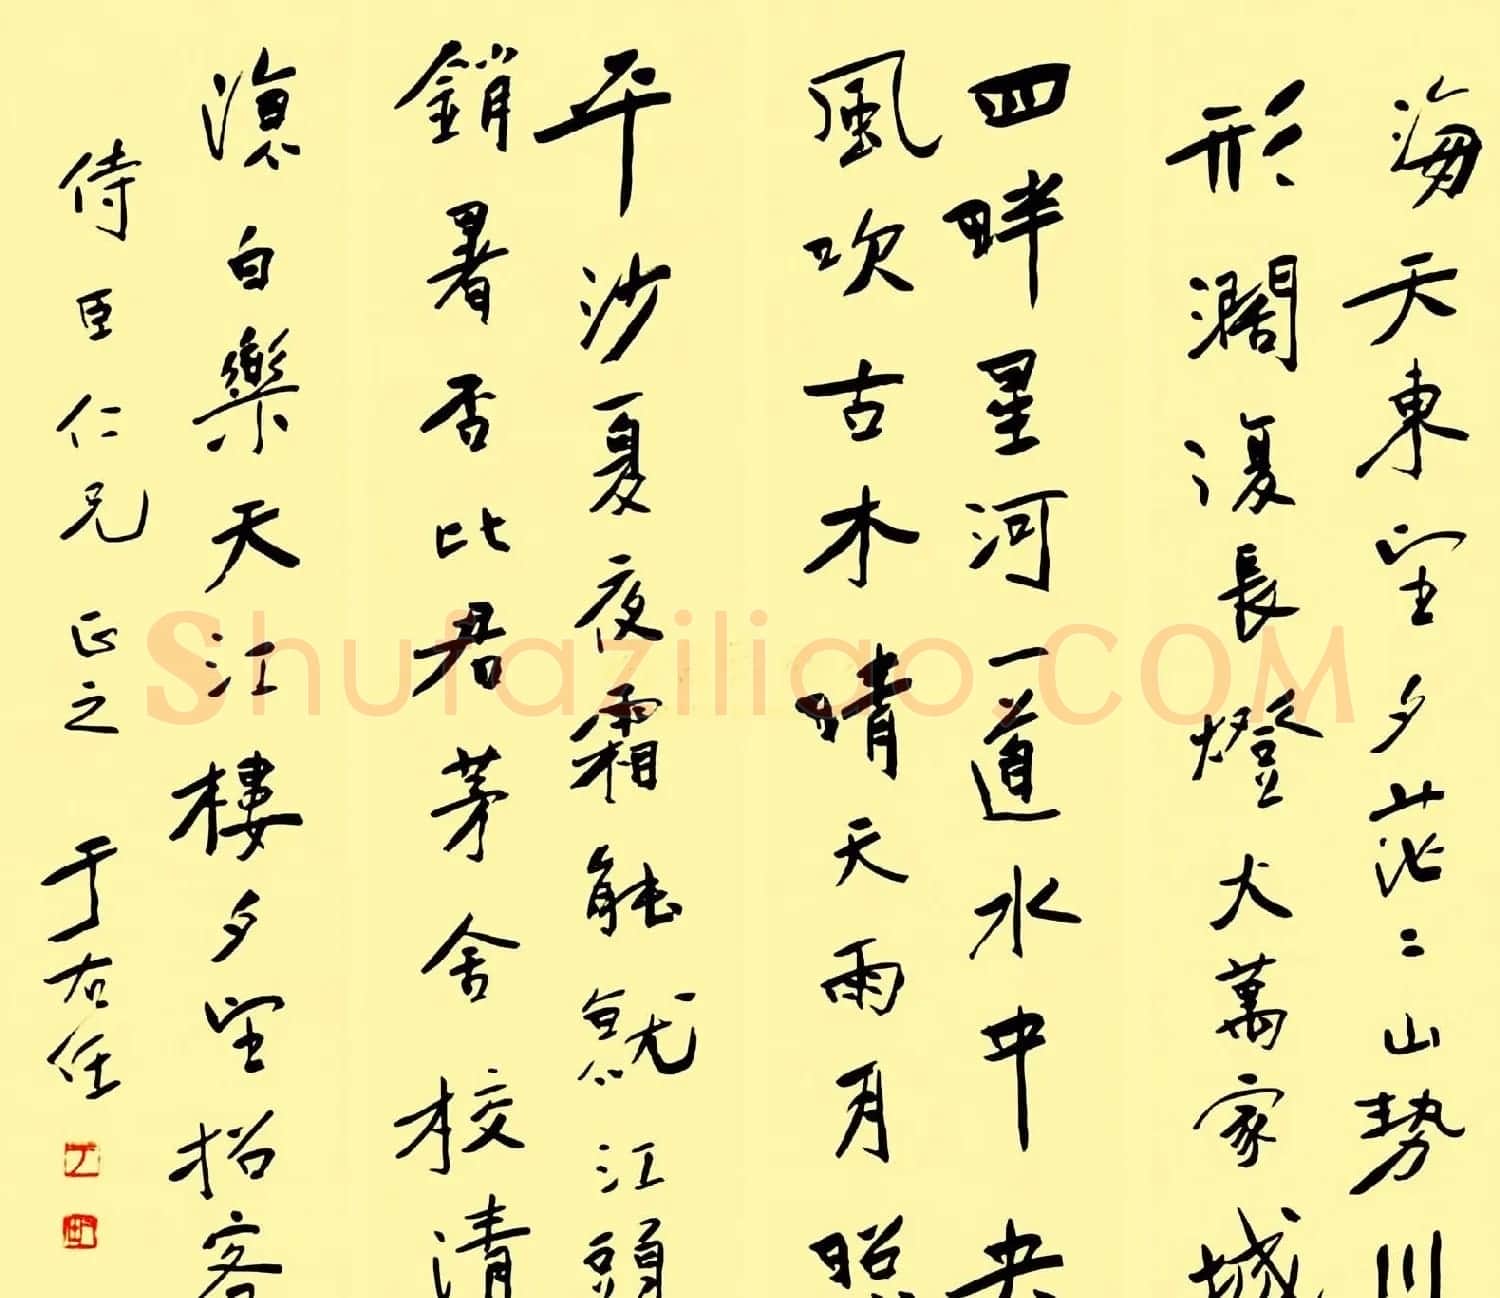 海天東望夕茫〻山勢川
形濶復長燈火萬家城
四畔星河一道水中央
風吹古木晴天雨月照
平沙夏夜霜能就江頭
銷暑否比君茅舍校清
涼白樂天江樓夕望招客
侍臣仁兄正之 于右任
Shufaziliao.COM